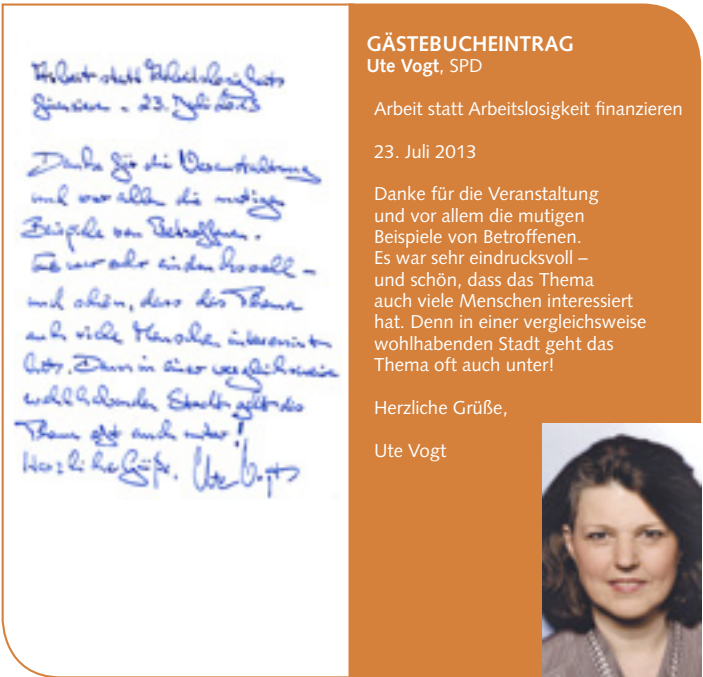 Arbeit statt Arbeitslosigkeit
finanzieren - 23. Juli 2013
Danke für die Veranstaltung
und vor allem die mutigen
Beispiele von Betroffenen.
Es war sehr eindrucksvoll –
und schön, dass das Thema
auch viele Menschen interessiert
hat. Denn in einer vergleichsweise
wohlhabenden Stadt geht das
Thema oft auch unter!
Herzliche Grüße, Ute Vogt
GÄSTEBUCHEINTRAG
Ute Vogt, SPD
Arbeit statt Arbeitslosigkeit finanzieren
23. Juli 2013
Danke für die Veranstaltung
und vor allem die mutigen
Beispiele von Betroffenen.
Es war sehr eindrucksvoll –
und schön, dass das Thema
auch viele Menschen interessiert
hat. Denn in einer vergleichsweise
wohlhabenden Stadt geht das
Thema oft auch unter!
Herzliche Grüße,
Ute Vogt